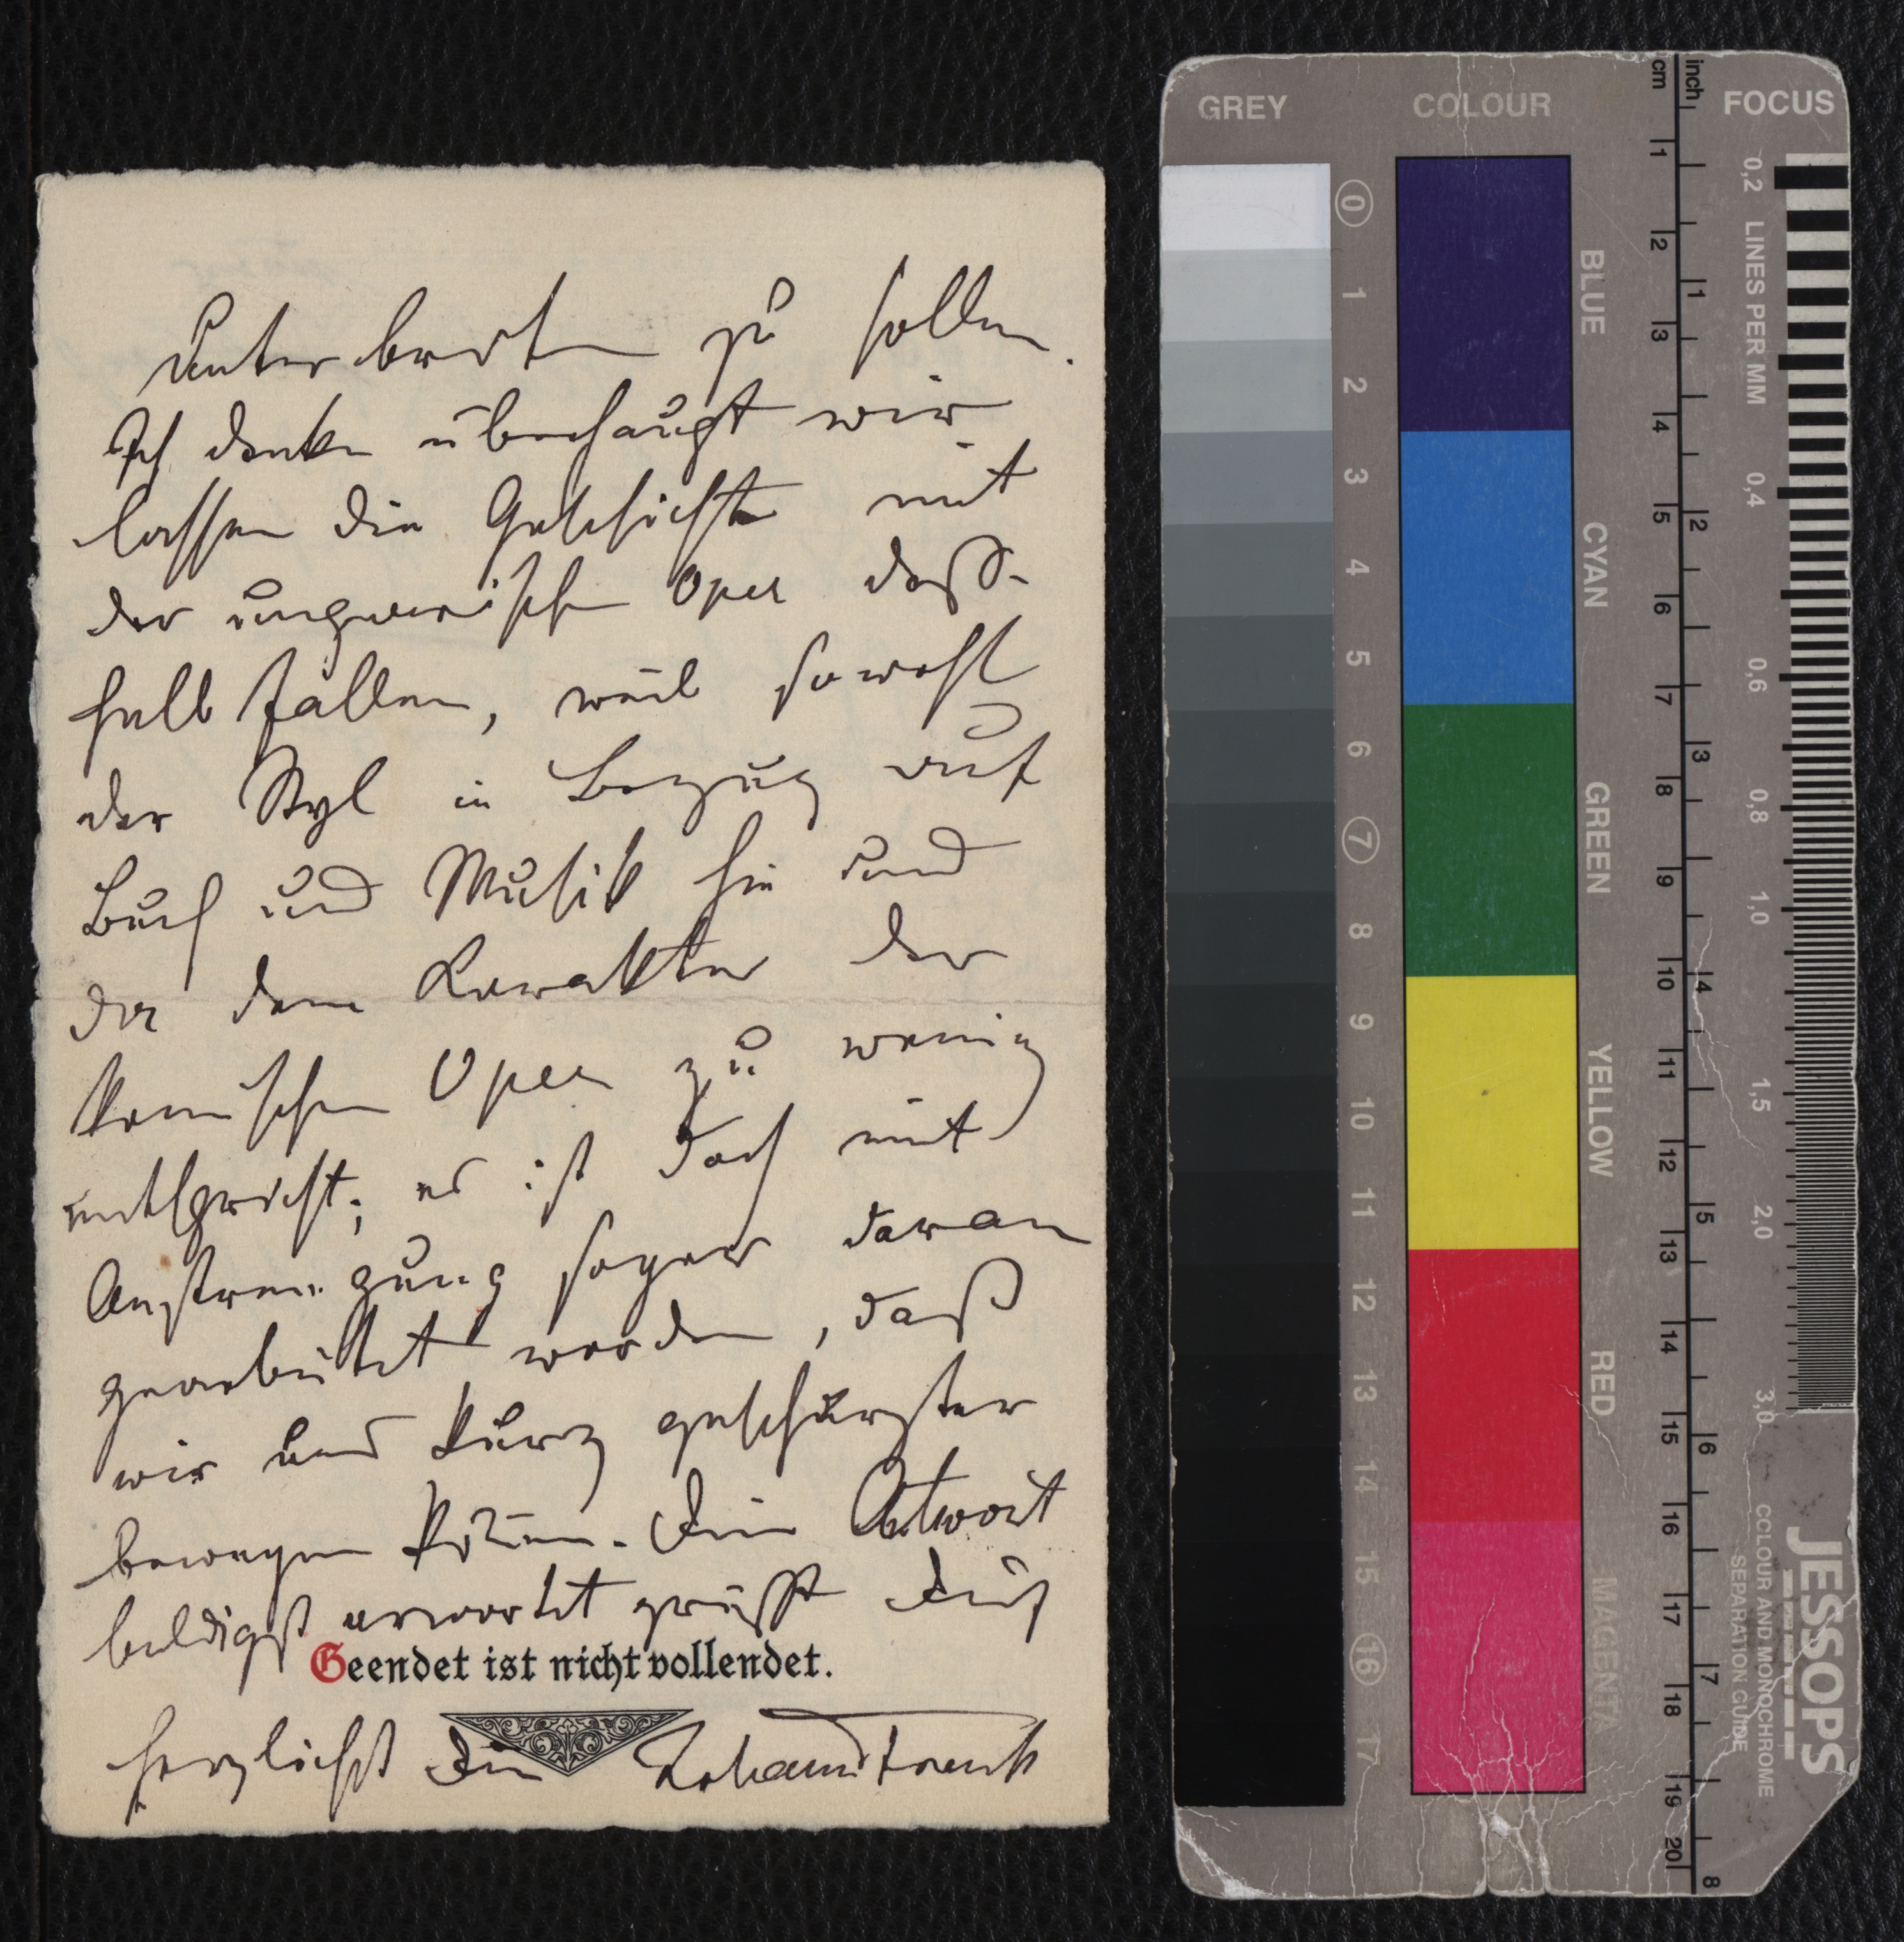 unterbreiten zu sollen.
Ich denke überhaupt wir
lassen die Geschichte mit
der ungarischen Oper deß-
halb fallen, weil sowohl
der Styl in Bezug auf
Buch und Musik hie und
da dem Karakter der
komischen Oper zu wenig
entspricht; es ist doch mit
Anstrengung sogar daran
gearbeitet worden, daß
wir uns kurz geschürzter
bewegen können. Antwort
baldigst erwartet grüßt Dich
Geendet ist nicht vollendet.
herzlichst Dein Johann Strauss
GREY COLOUR cm inch FOCUS
0 1 2 3 4 5 6 7 8 9 10 11 12 13 14 15 16 17
BLUE
CYAN
GREEN
YELLOW
RED
MAGENTA
1 2 3 4 5 6 7 8 9 10 11 12 13 14 15 16 17 18 19 20
1 2 3 4 5 6 7 8
0,2 LINES PER MM 0,4 0,6 0,8 1,0 1,5 2,0 3,0
JESSOPS
COLOUR AND MONOCHROME
SEPARATION GUIDE